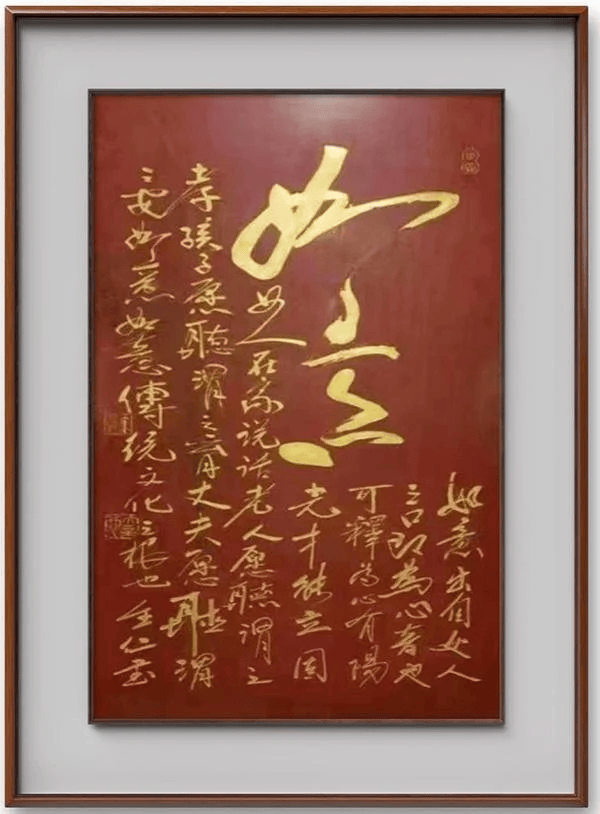 如意
如意出自女人
之口即為心者也
可釋為心有陽
光才能立因
女人在家说话老人愿聽謂之
孝孩子愿聽謂之育丈夫愿聽謂
之安如意如意傳統文化之根也